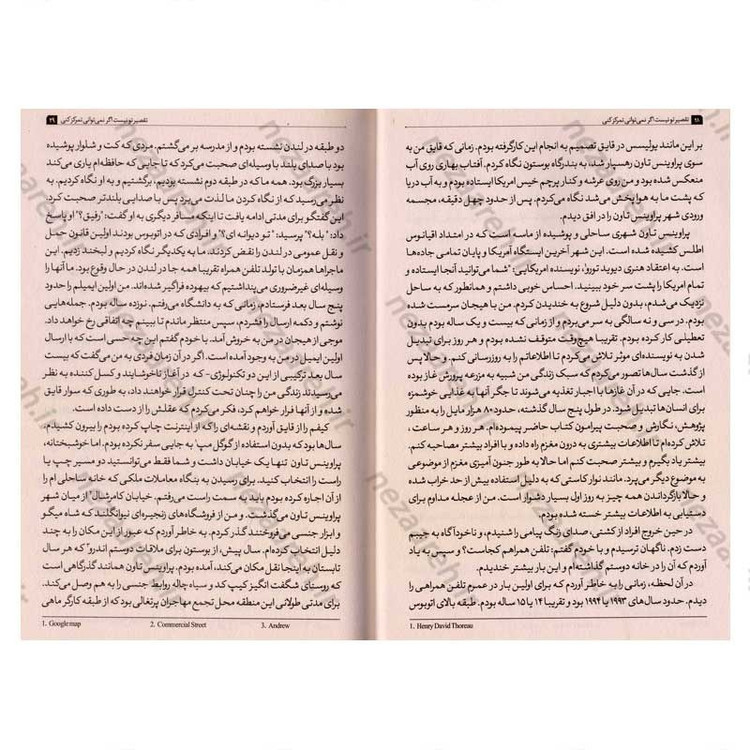 ۲۸ تقصیر تو نیست اگر نمی‌توانی تمرکز کنی
بر این مانند پولیسس در قایق تصمیم به انجام این کار گرفته بودم. زمانی که قایق من به
سوی پراوینس تاون رهسپار شد، به بندرگاه بوستون نگاه کردم. آفتاب بهاری روی آب
منعکس شده بود و من روی عرشه و کنار پرچم خیس امریکا ایستاده بودم و به آب دریا
که پشت ما به هوا پخش می‌شد نگاه می‌کردم. پس از حدود چهل دقیقه، مجسمه
ورودی شهر پراوینس تاون را در افق دیدم.
پراوینس تاون شهری ساحلی و پوشیده از ماسه است که در امتداد اقیانوس
اطلس کشیده شده است. این شهر آخرین ایستگاه آمریکا و پایان تمامی جاده‌ها
است. به اعتقاد هنری دیوید تورو۱، نویسنده امریکایی: "شما می‌توانید آنجا ایستاده و
تمام امریکا را پشت سر خود ببینید. احساس خوبی داشتم و همانطور که به ساحل
نزدیک می‌شدم، بدون دلیل شروع به خندیدن کردم. من با هیجان سرمست شده
بودم. در سی و نه سالگی به سر می‌بردم و از زمانی که بیست و یک ساله بودم بدون
تعطیلی کار کرده بودم. تقریبا هیچ‌وقت متوقف نشده بودم و هر روز برای تبدیل
شدن به نویسنده‌ای موثر تلاش می‌کردم تا اطلاعاتم را به روزرسانی کنم. و حالا پس
از گذشت سال‌ها تصور می‌کردم که سبک زندگی من شبیه به مزرعه پرورش غاز بوده
است. جایی که در آن غازها با اجبار تغذیه می‌شوند تا جگر آنها به غذایی خوشمزه
برای انسان‌ها تبدیل شود. در طول پنج سال گذشته، حدود ۸۰ هزار مایل را به منظور
پژوهش، نگارش و صحبت پیرامون کتاب حاضر پیموده‌ام. هر روز و هر ساعت،
تلاش کرده‌ام تا اطلاعات بیشتری به درون مغزم راه داده و با افراد بیشتر مصاحبه کنم.
بیشتر یاد بگیرم و بیشتر صحبت کنم اما حالا به طور جنون آمیزی مغزم از موضوعی
به موضوع دیگر می‌پرد. مانند نوار کاستی که به دلیل استفاده بیش از حد خراب شده
و حالا بازگرداندن همه چیز به روز اول بسیار دشوار است. من از عجله مداوم برای
دستیابی به اطلاعات بیشتر خسته شده بودم.
در حین خروج افراد از کشتی، صدای زنگ پیامی را شنیدم، و ناخودآگاه به جیبم
دست زدم. ناگهان ترسیدم و با خودم گفتم، تلفن همراهم کجاست؟ و سپس به یاد
آوردم که آن را در خانه دوستم گذاشته‌ام و این بار بیشتر خندیدم.
در آن لحظه، زمانی را به خاطر آوردم که برای اولین بار در عمرم تلفن همراهی را
دیدم. حدود سال‌های ۱۹۹۳ یا ۱۹۹۴ بود و تقریبا ۱۴ یا ۱۵ ساله بودم. طبقه بالای اتوبوس
1. Henry David Thoreau
تقصیر تو نیست اگر نمی‌توانی تمرکز کنی ۲۹
دو طبقه در لندن نشسته بودم و از مدرسه بر می‌گشتم. مردی که کت و شلوار پوشیده
بود با صدای بلند با وسیله‌ای صحبت می‌کرد که تا جایی که حافظه‌ام یاری می‌کند
بسیار بزرگ بود. همه ما که در طبقه دوم نشسته بودیم، برگشتیم و به او نگاه کردیم. به
نظر می‌رسید که از نگاه کردن ما لذت می‌برد پس با صدایی بلندتر صحبت کرد.
این گفتگو برای مدتی ادامه یافت تا اینکه مسافر دیگری به او گفت: "رفیق؟" او پاسخ
داد: "بله؟" پرسید: "تو دیوانه ای؟" و افرادی که در اتوبوس بودند اولین قانون حمل
و نقل عمومی در لندن را نقض کردند، ما به یکدیگر نگاه کردیم و لبخند زدیم. این
ماجراها همزمان با تولد تلفن همراه تقریبا همه جا در لندن در حال وقوع بود. ما آنها را
وسیله‌ای غیرضروری می‌پنداشتیم که بیهوده فراگیر شده‌اند. من اولین ایمیلم را حدود
پنج سال بعد فرستادم، زمانی که به دانشگاه می‌رفتم. نوزده ساله بودم. جمله‌هایی
نوشتم و دکمه ارسال را فشردم، سپس منتظر ماندم تا ببینم چه اتفاقی رخ خواهد داد.
موجی از هیجان در من به خروش آمد. با خودم گفتم این چه حسی است که با ارسال
اولین ایمیل در من به وجود آمده است. اگر در آن زمان فردی به من می‌گفت که بیست
سال بعد ترکیبی از این دو تکنولوژی- که در آغاز ناخوشایند و کسل کننده به نظر
می‌رسیدند زندگی من را چنان تحت کنترل قرار خواهند داد، به طوری که سوار قایق
شده و از آنها فرار خواهم کرد، فکر می‌کردم که عقلش را از دست داده است.
کیفم را از قایق آوردم و نقشه‌ای را که از اینترنت چاپ کرده بودم را بیرون کشیدم.
سال‌ها بود که بدون استفاده از گوگل مپ۱ به جایی سفر نکرده بودم. اما خوشبختانه،
پراوینس تاون تنها یک خیابان داشت و شما فقط می‌توانستید دو مسیر چپ یا
راست را انتخاب کنید. برای رسیدن به بنگاه معاملات ملکی که خانه ساحلی ام را
از آن اجاره کرده بودم باید به سمت راست می‌رفتم. خیابان کامرشیال۲ از میان شهر
پراوینس تاون می‌گذشت. و من از فروشگاه‌های زنجیره‌ای نیوانگلند که شاه میگو
و ابزار جنسی می‌فروختند گذر کردم. به خاطر آوردم که عبور از این مکان را به چند
دلیل انتخاب کرده‌ام. سال پیش، از بوستون برای ملاقات دوستم اندرو۳ که هر سال
تابستان به اینجا نقل مکان می‌کند، آمده بودم. پراوینس تاون همانند گذرگاهی است
که روستای شگفت انگیز کیپ کد و سیاه چاله روابط جنسی را به هم وصل می‌کند.
برای مدتی طولانی این منطقه محل تجمع مهاجران پرتغالی بود که از طبقه کارگر ماهی
1. Google map 2. Commercial Street 3. Andrew
nezaareh.ir